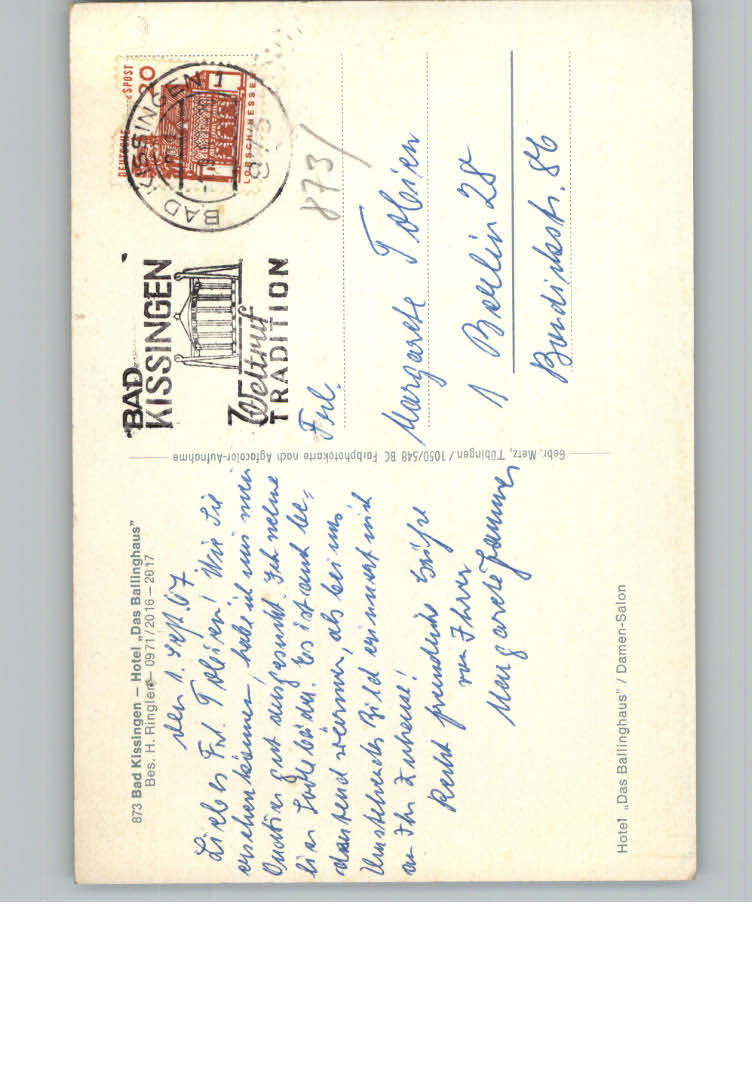 873 Bad Kissingen — Hotel „Das Ballinghaus"
Bes. H. Ringler — 0971/2016 – 2017
den 1. Sept. 67.
Liebes Frl. Tobien! Wie Sie
ersehen können, habe ich mir mein
Quartier gut ausgesucht. Ich nehme
hier Solebäder. Es ist auch be-
deutend wärmer, als bei uns
Umstehendes Bild erinnert mich
an Ihr Zuhause!
Recht freundliche Grüße
von Ihrer
Margarete
Hotel „Das Ballinghaus" / Damen-Salon
Gebr. Metz, Tübingen / 1050/548 BC Farbphotokarte nach Agfacolor-Aufnahme
BAD
KISSINGEN
Weltruf
TRADITION
BAD KISSINGEN 1
873
DEUTSCHE BUNDESPOST
20
LORSCH/HESSEN
873/
Frl.
Margarete Tobien
1 Berlin 28
86